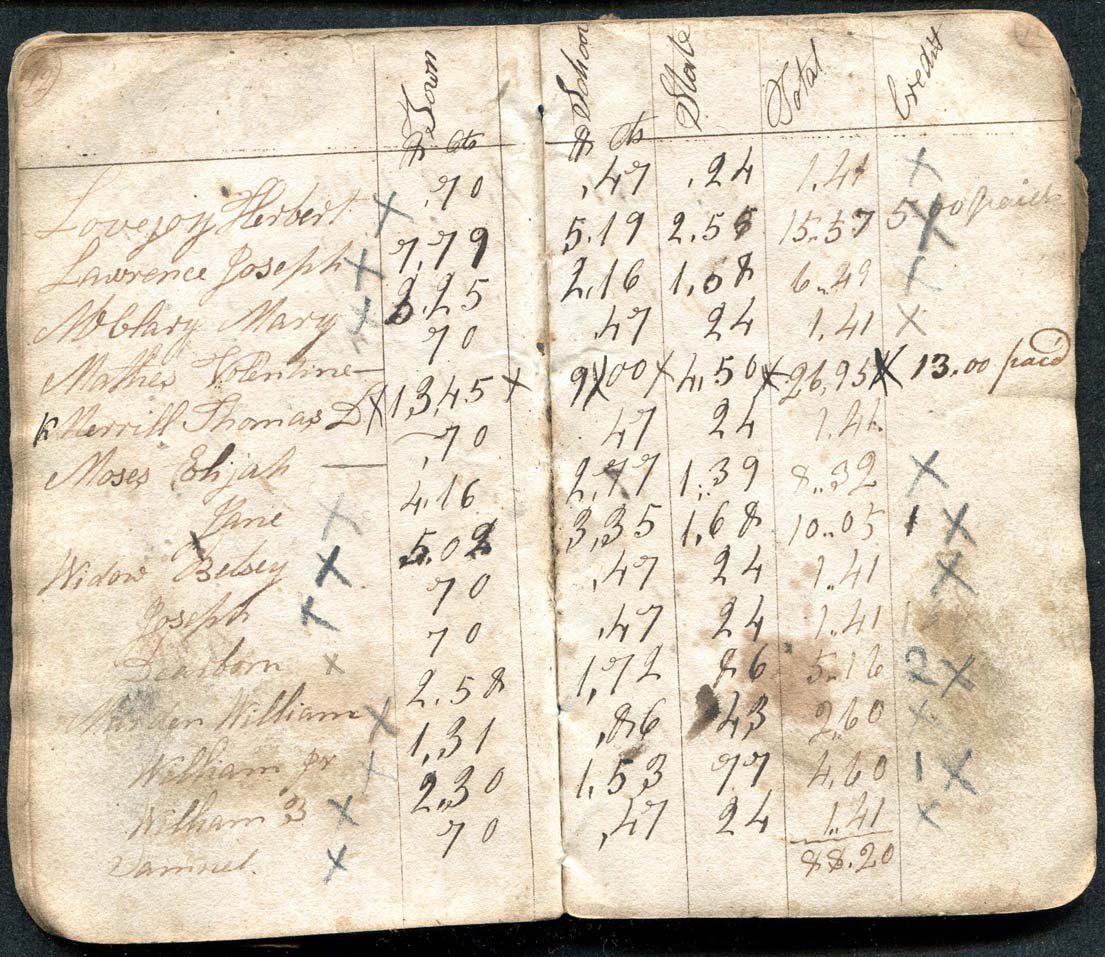 Town School State Total Credit
$ cts $ cts
Lovejoy Herbert X ,70 ,47 ,24 1.41 X
Lawrence Joseph X 7,79 5.19 2.55 15..57 5.00 paid
McClary Mary X 3.25 2,16 1,08 6..49 X
Mathes Volentine 70 ,47 24 1.41 X
Merrill Thomas D X 13,45 X 9,00 X 4,50 X 26,95 X 13.00 paid
Moses Elijah — ,70 47 24 1.41
Jane X 4.16 2,77 1,39 8..32 X
Widow Betsey X 5.02 3,35 1,68 10..05 1 X
Joseph X 70 ,47 24 1.41 X
Dearborn X 70 ,47 24 1.41
Marden William X 2.58 1,72 86 5.16 2 X
William Jr X 1,31 ,86 43 2,60 X
William 3 X 2,30 1,53 77 4,60 1 X
Samuel. X 70 ,47 24 1..41 X
88.20